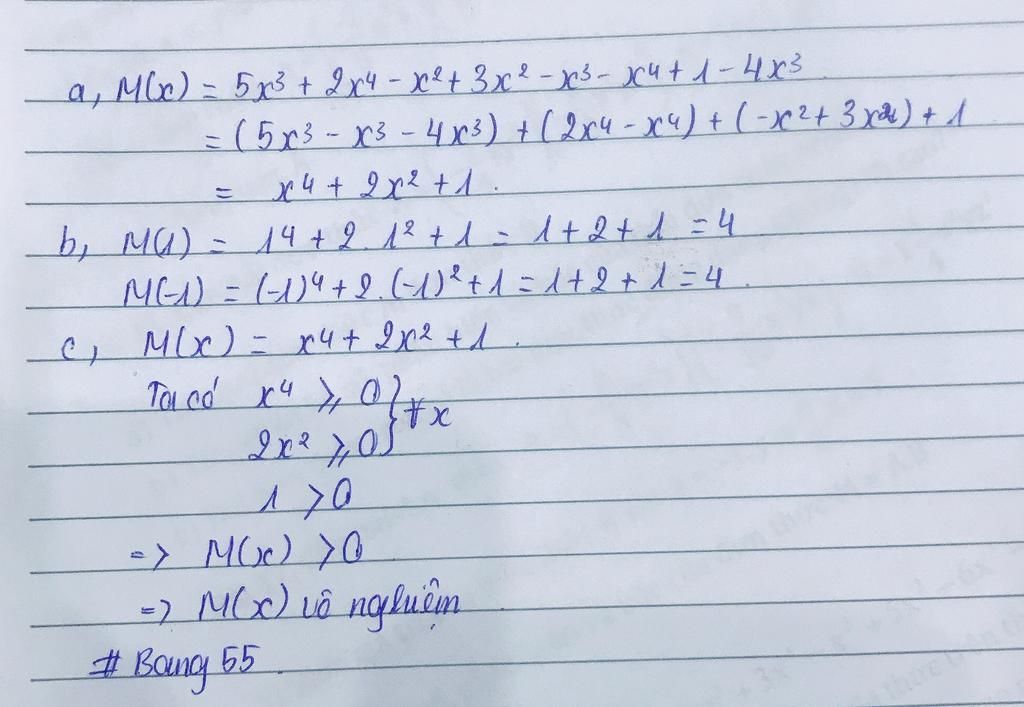 a, M(x) = 5x³ + 2x⁴ - x² + 3x² - x³ - x⁴ + 1 - 4x³
= (5x³ - x³ - 4x³) + (2x⁴ - x⁴) + (-x² + 3x²) + 1
= x⁴ + 2x² + 1.
b, M(1) = 1⁴ + 2. 1² + 1 = 1 + 2 + 1 = 4
M(-1) = (-1)⁴ + 2. (-1)² + 1 = 1 + 2 + 1 = 4.
c, M(x) = x⁴ + 2x² + 1.
Ta có x⁴ ⩾ 0 } ∀x
2x² ⩾ 0
1 > 0
=> M(x) > 0
=> M(x) vô nghiệm
# Bang 55.